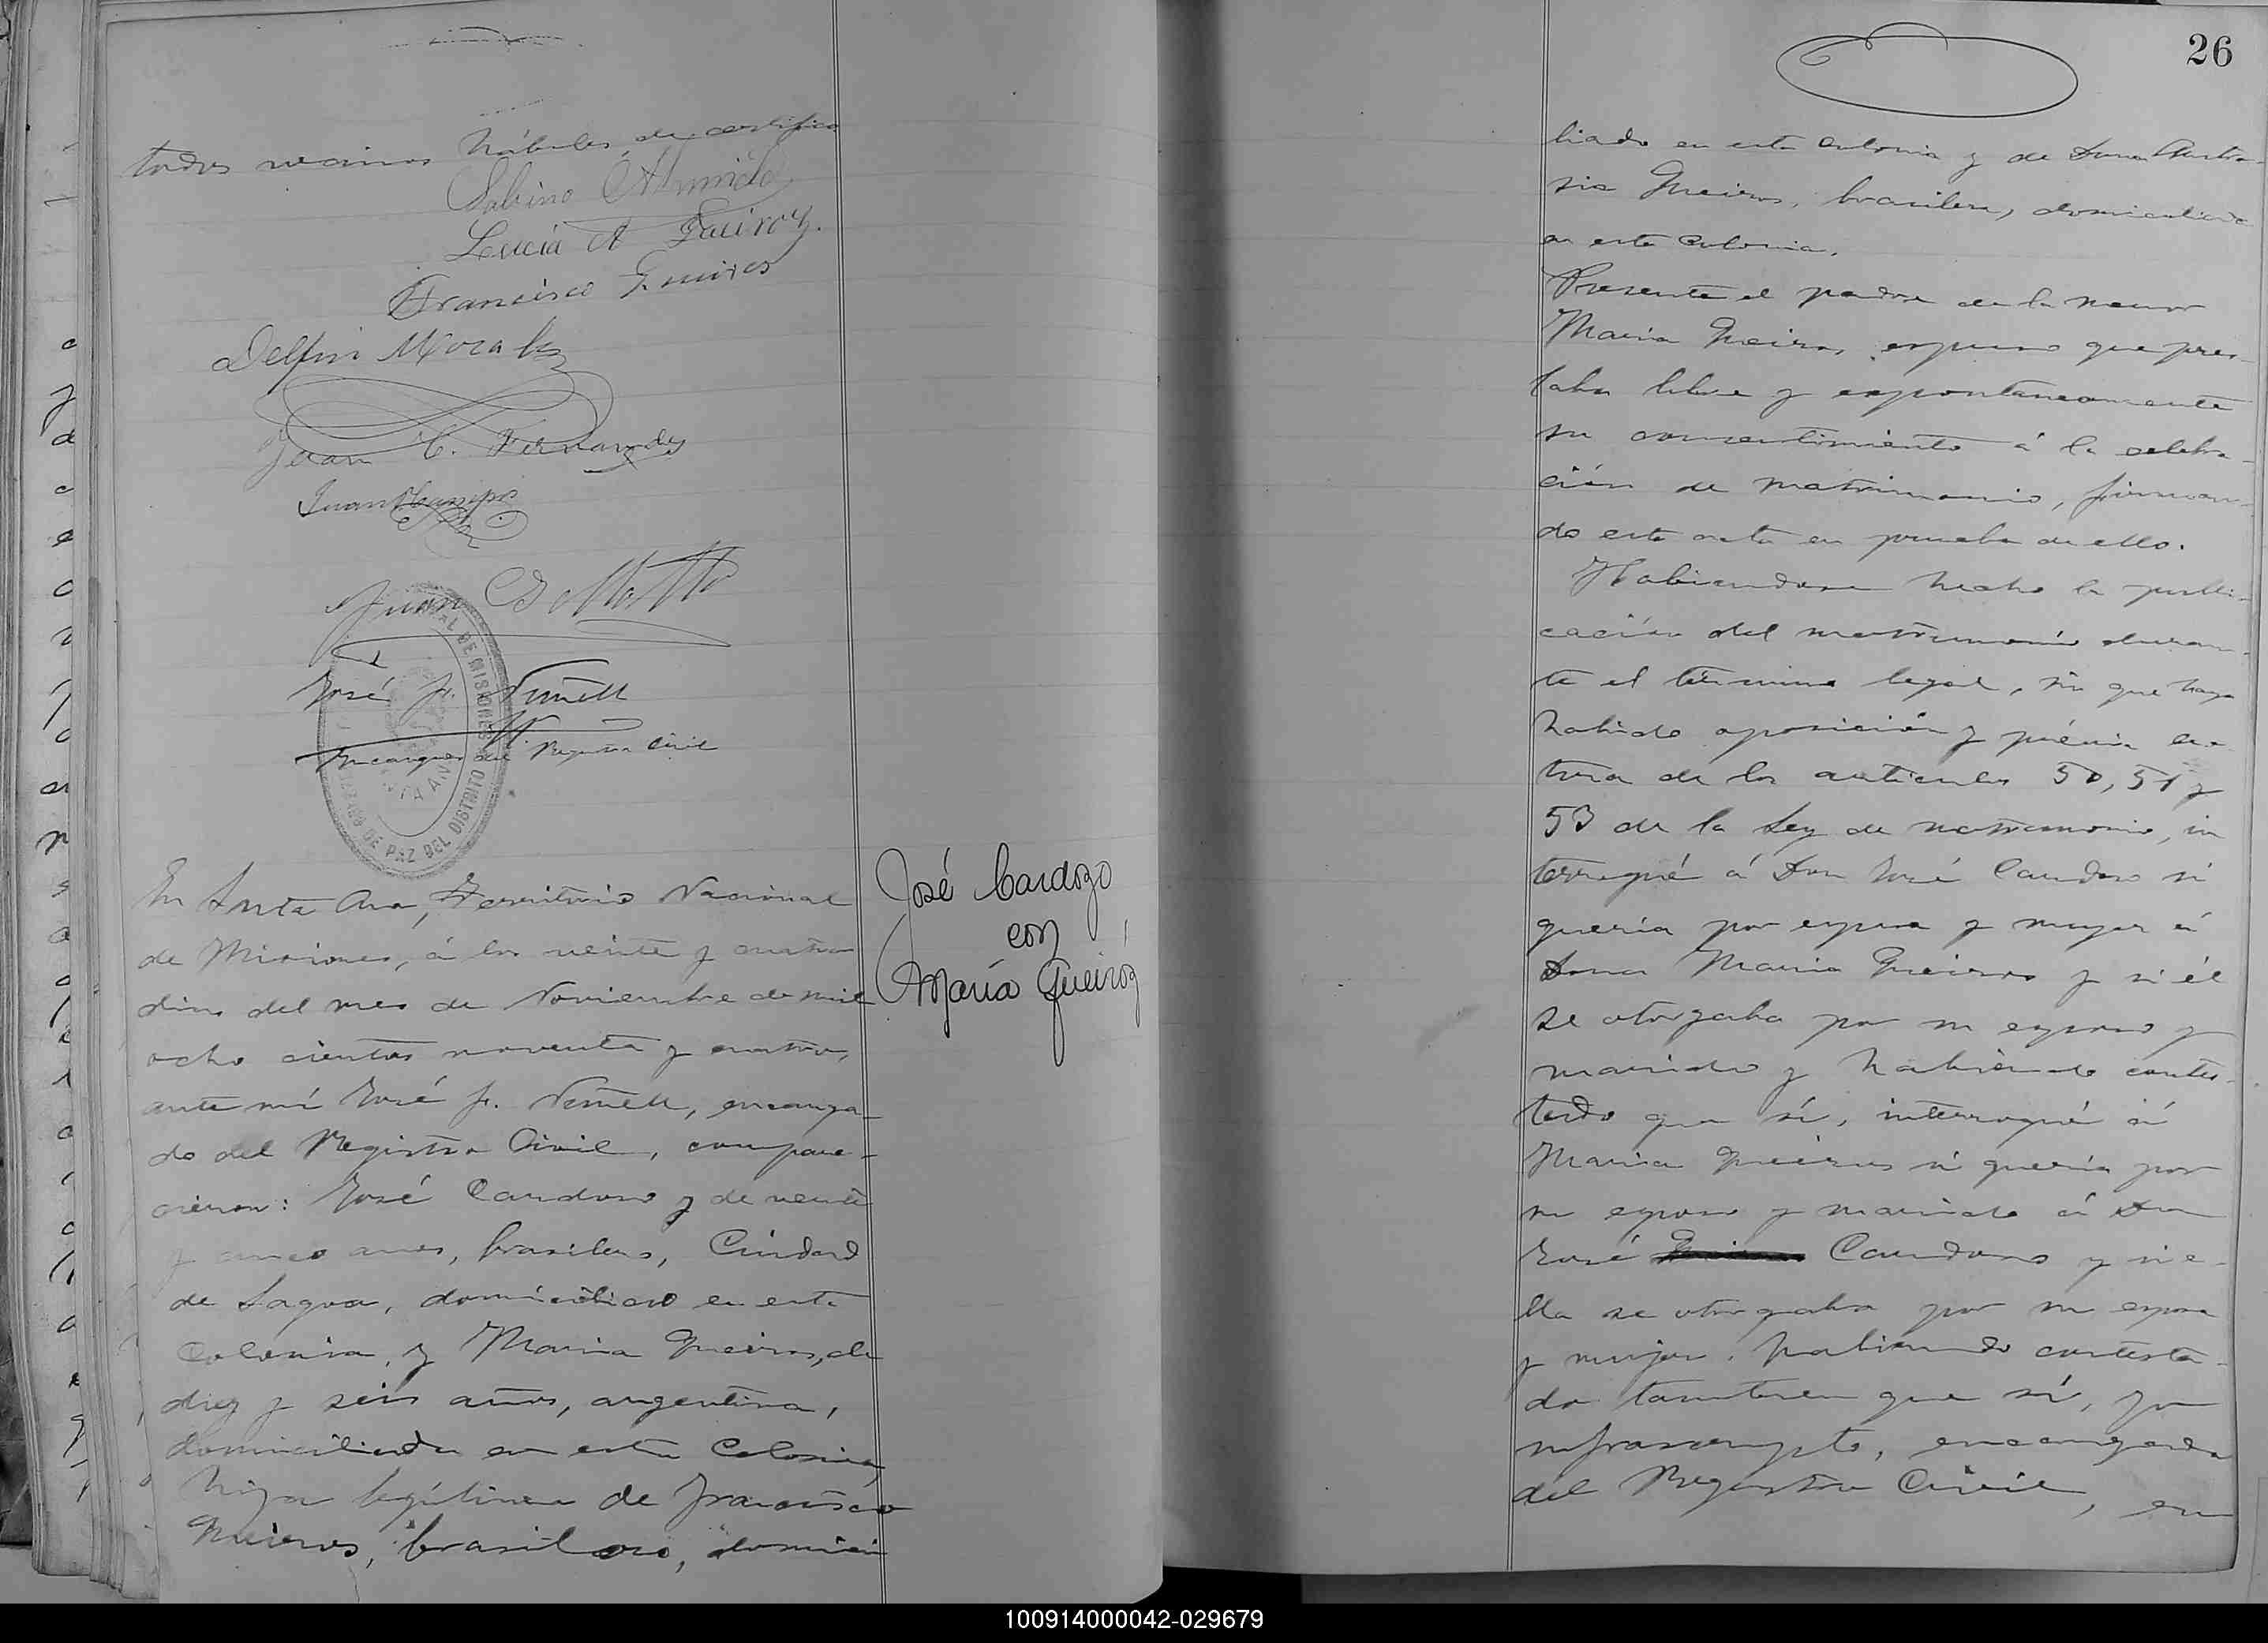 todos vecinos hábiles, de certifico
Sabino Almeida
Lucía A Queiroz.
Francisco Queiros
Delfin Morales
Juan C. Fernandes
Juan Campos
Juan
José F.
Encargado del Registro Civil
JUZGADO DE PAZ DEL DISTRITO
DE MISIONES
SANTA ANA
En Santa Ana, Territorio Nacional
de Misiones, á los veinte y cuatro
dias del mes de Noviembre de mil
ocho cientos noventa y cuatro,
ante mí José F. , encarga-
do del Registro Civil, compare-
cieron: José Cardoso y de veinte
y cinco anos, brasilero, Ciudad
de Lagoa, domiciliado en esta
Colonia, y Maria Queiros, de
diez y seis años, argentina,
domiciliada en esta Colonia,
hija legítima de Francisco
Queiros, brasilero, domici
José Cardozo
con
María Queiróz
26
liado en esta Colonia y de Dona
Queiros, brasilera, domiciliada
en esta Colonia.
Presente el padre de la menor
Maria Queiros, espuso que pres-
taba libre y espontaneamente
su consentimiento á la celebra-
ción de matrimonio, firman-
do esta acta en prueba de ello.
Habiendose hecho la publi-
cación del matrimonio duran-
te el término legal, sin que haya
habido oposición y prévia lec-
tura de los articulos 50, 51 y
53 de la Ley de matrimonio, in
terrogué á Don José Cardoso si
queria por esposa y mujer á
Dona Maria Queiros y si él
se otorgaba por su esposo y
marido y habiendo contes-
tado que sí, interrogué á
Maria Queiros si queria por
su esposo y marido á Don
José Cardoso y si e-
lla se otorgaba por su esposa
y mujer, habiendo contesta-
do tambien que sí, yo
infrascripto, encargado
del Registro Civil, en
100914000042-029679